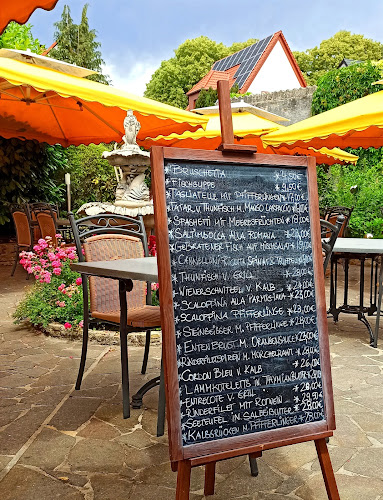 * Bruschetta * 9,50€
* Fischsuppe * 9,50€
* Tagliatelle mit Pfifferlinge
* Tatar v. Thunfisch m. Mango
* Spaghetti mit Meeresfrüchten
* Saltimbocca alla Romana
* Gebratener Fisch auf
* Cannelloni
* Thunfisch v. Grill
* Wienerschnitzel v. Kalb
* Scaloppina alla Parmigiana * 23,00€
* Scaloppina Pfifferlinge * 23,00€
* Steinbeißer m. Pfifferlinge * 28,00€
* Entenbrust m. Orangensauce * 23,00€
* Rinderfiletspitzen m. Morchelrahm
* Cordon Bleu v. Kalb
* Lammkoteletts in Thymian
* Entrecote v. Grill * 28,00€
* Rinderfilet mit Rotwein * 29,50€
* Seeteufel in Salbeibutter * 28,00€
* Kalbsrücken m. Pfifferlinge * 28,00€